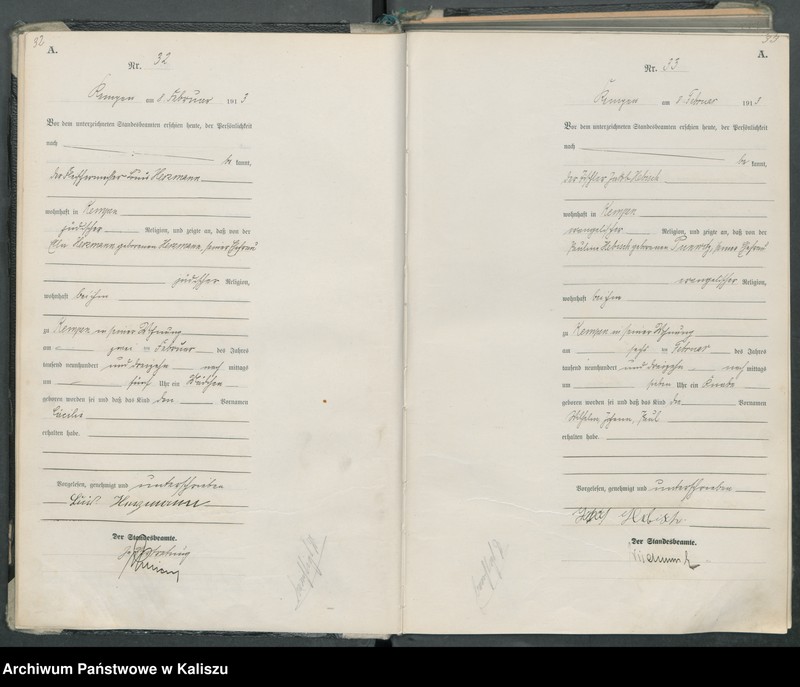 32
A.
Nr. 32
Kempen am 8. Februar 1913
Vor dem unterzeichneten Standesbeamten erschien heute, der Persönlichkeit
nach
be kannt,
der
wohnhaft in Kempen
jüdischer Religion, und zeigte an, daß von der
geborenen seiner Ehefrau
jüdischer Religion,
wohnhaft bei ihm
zu Kempen in seiner Wohnung
am zwei Februar des Jahres
tausend neunhundert und dreizehn nach mittags
um fünf Uhr ein Mädchen
geboren worden sei und daß das Kind den Vornamen
Cäcilie
erhalten habe.
Vorgelesen, genehmigt und unterschrieben
Der Standesbeamte.
In Vertretung
33
A.
Nr. 33
Kempen am 8. Februar 1913
Vor dem unterzeichneten Standesbeamten erschien heute, der Persönlichkeit
nach
be kannt,
der Tischler
wohnhaft in Kempen
evangelischer Religion, und zeigte an, daß von der
geborenen seiner Ehefrau
evangelischer Religion,
wohnhaft bei ihm
zu Kempen in seiner Wohnung
am Februar des Jahres
tausend neunhundert und dreizehn nach mittags
um sieben Uhr ein Knabe
geboren worden sei und daß das Kind die Vornamen
Wilhelm Paul
erhalten habe.
Vorgelesen, genehmigt und unterschrieben
Der Standesbeamte.
Archiwum Państwowe w Kaliszu